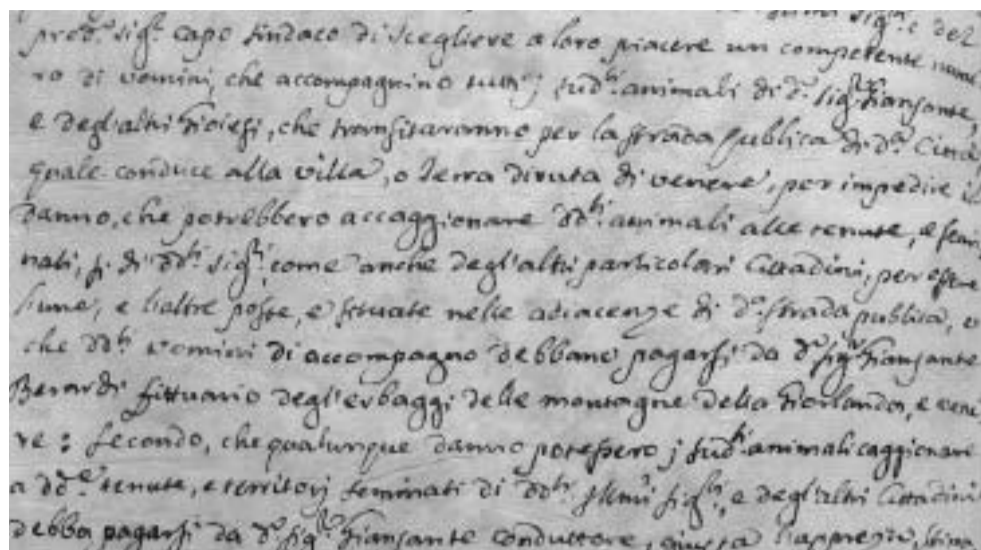 sig.ri e del
pred.o sig.r capo sindaco di scegliere a loro piacere un competente nume
ro di uomini, che accompagnino tutti j sud.ti animali di d.o sig.r Giansante,
e degl'altri Gioiesi, che transitaranno per la strada publica di d.a Città,
quale conduce alla villa, o Terra diruta di venere, per impedire il
danno, che potrebbero accaggionare dd.ti animali alle tenute, e semi
nati, sì di dd.ti sig.ri come anche degl'altri particolari Cittadini, per essere
l'une, e l'altre poste, e situate nelle adiacenze di d.a strada publica, e
che dd.ti uomini di accompagno debbano pagarsi da d.o sig.r Giansante
Berardi fittuario degl'erbaggi delle montagne della Giorlanda, e vene
re: secondo, che qualunque danno potessero j sud.ti animali caggionare
a dd.e tenute, e territorj seminati di dd.ti Ill.mi sig.ri, e degl'altri Cittadini
debba pagarsi da d.o sig.r Giansante conduttore, giusta l'apprezzo,